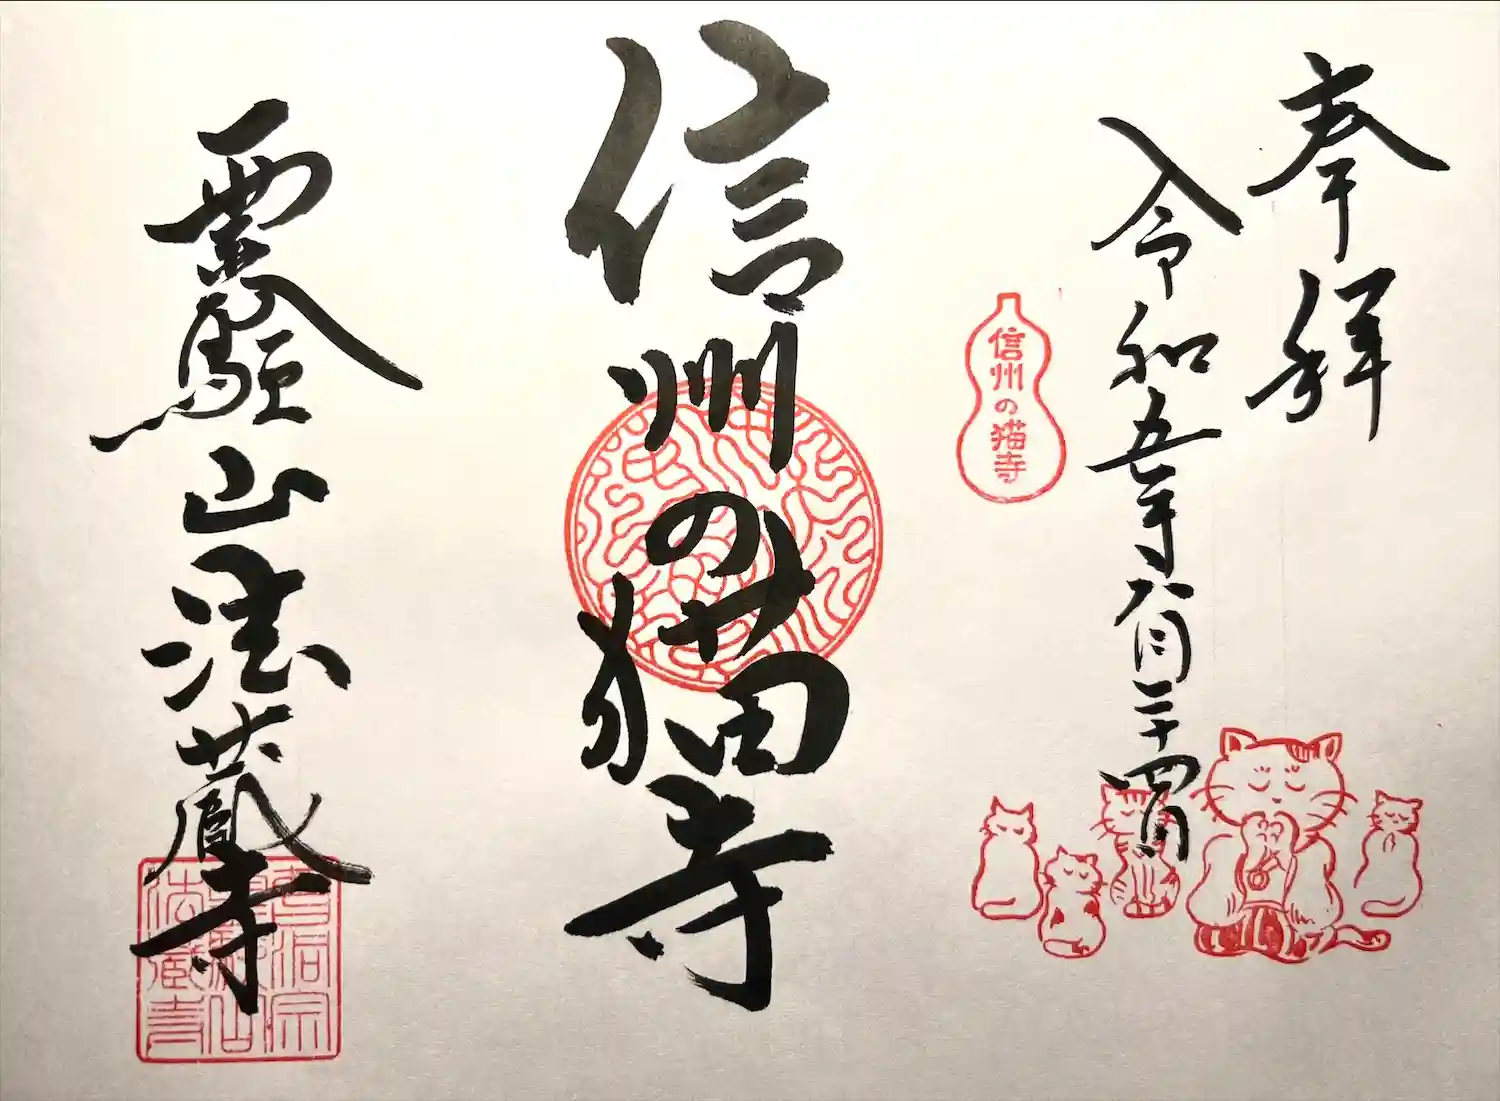 奉拝
令和五年六月二十四日
信州の猫寺
信州の猫寺
霊験山法蔵寺
曹洞宗
霊験山
法蔵寺